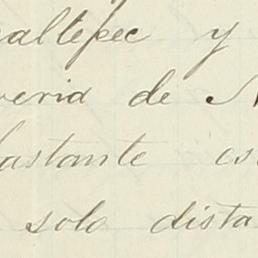 altepec y
veria de
bastante es
solo dista